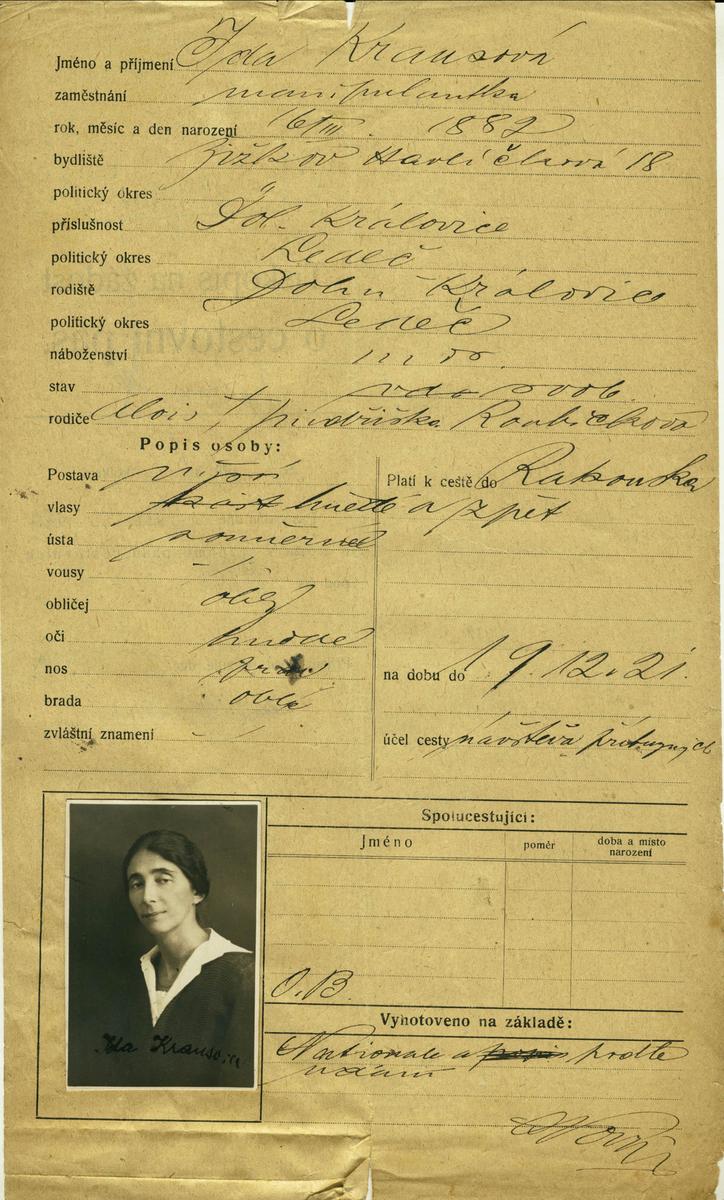 Jméno a příjmení Ida Krausová
zaměstnání manipulantka
rok, měsíc a den narození 16/III. 1882
bydliště Žižkov Havlíčkova 18
politický okres
příslušnost Dol. Královice
politický okres Ledeč
rodiště Dolní Královice
politický okres Ledeč
náboženství
stav
rodiče Alois † Bedřiška Roubíčkova
Popis osoby:
Postava
vlasy hnědé
ústa souměrná
vousy -
obličej oblý
oči hnědé
nos
brada oblá
zvláštní znamení -
Platí k cestě do Rakouska
a zpět
na dobu do 19.12.21.
účel cesty návštěva příbuzných
Ida Krausová
Spolucestující:
Jméno poměr doba a místo
narození
O.B.
Vyhotoveno na základě:
Nationale a podle
udání